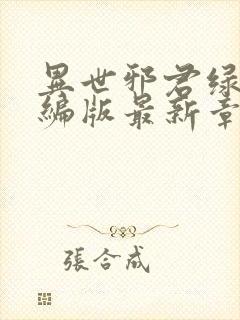 異世邪君绿
編版最新章
張合成